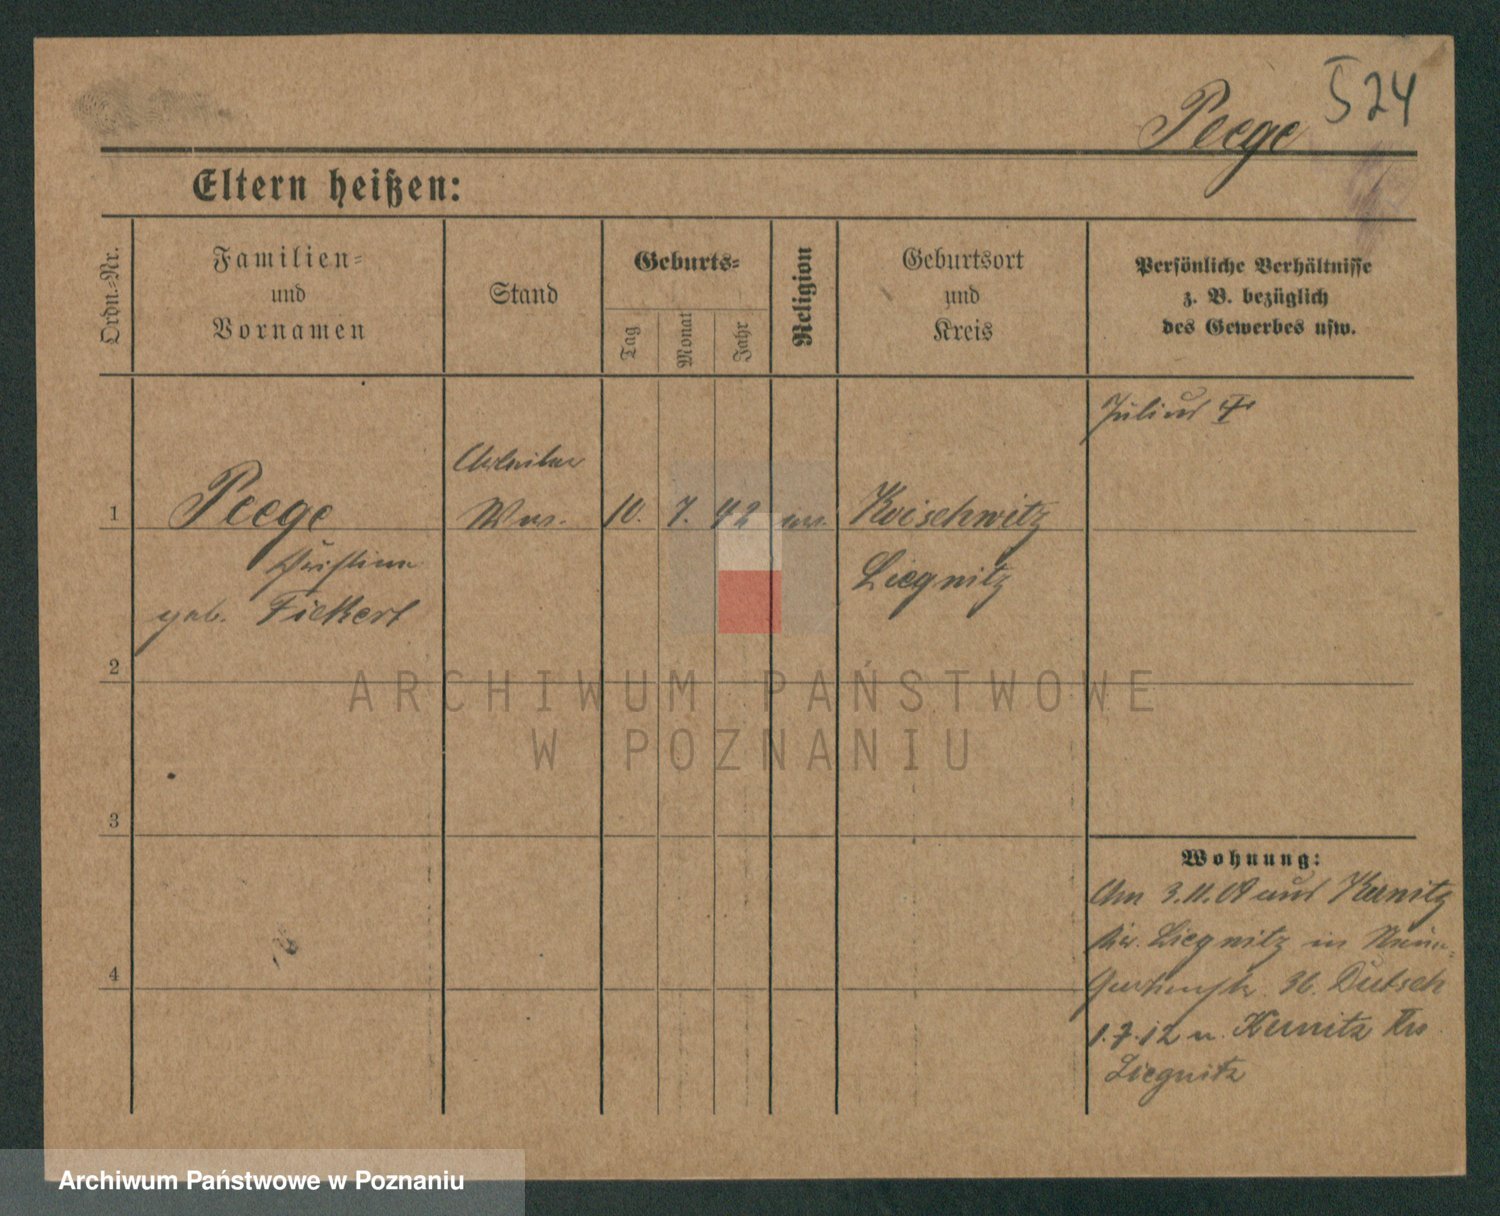 524
Peege
Eltern heißen:
Ordn.-Nr.
Familien-
und
Vornamen
Stand
Geburts-
Tag
Monat
Jahr
Religion
Geburtsort
und
Kreis
Persönliche Verhältnisse
z. B. bezüglich
des Gewerbes usw.
Julius
Arbeiter
1 Peege Ww. 10. 7. 42 ev. Koischwitz
Christiane
Liegnitz
geb. Fickert
2
3
4
Wohnung:
Am 3.11.09 aus Kunitz
Kr. Liegnitz in
36. Dutsch
1.7.12 n. Kunitz Krs
Liegnitz
ARCHIWUM PAŃSTWOWE
W POZNANIU
Archiwum Państwowe w Poznaniu